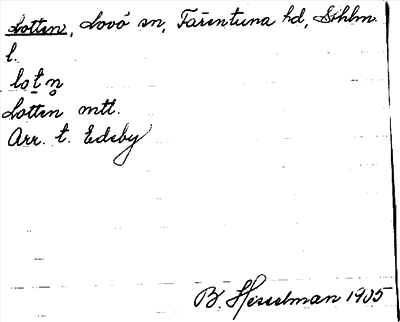 Lotten, Lovö sn, Färentuna hd, Sthlm
l.
lo̲t̲n̥
Lotten mtl.
Arr. t. Edeby
B. Hesselman 1905